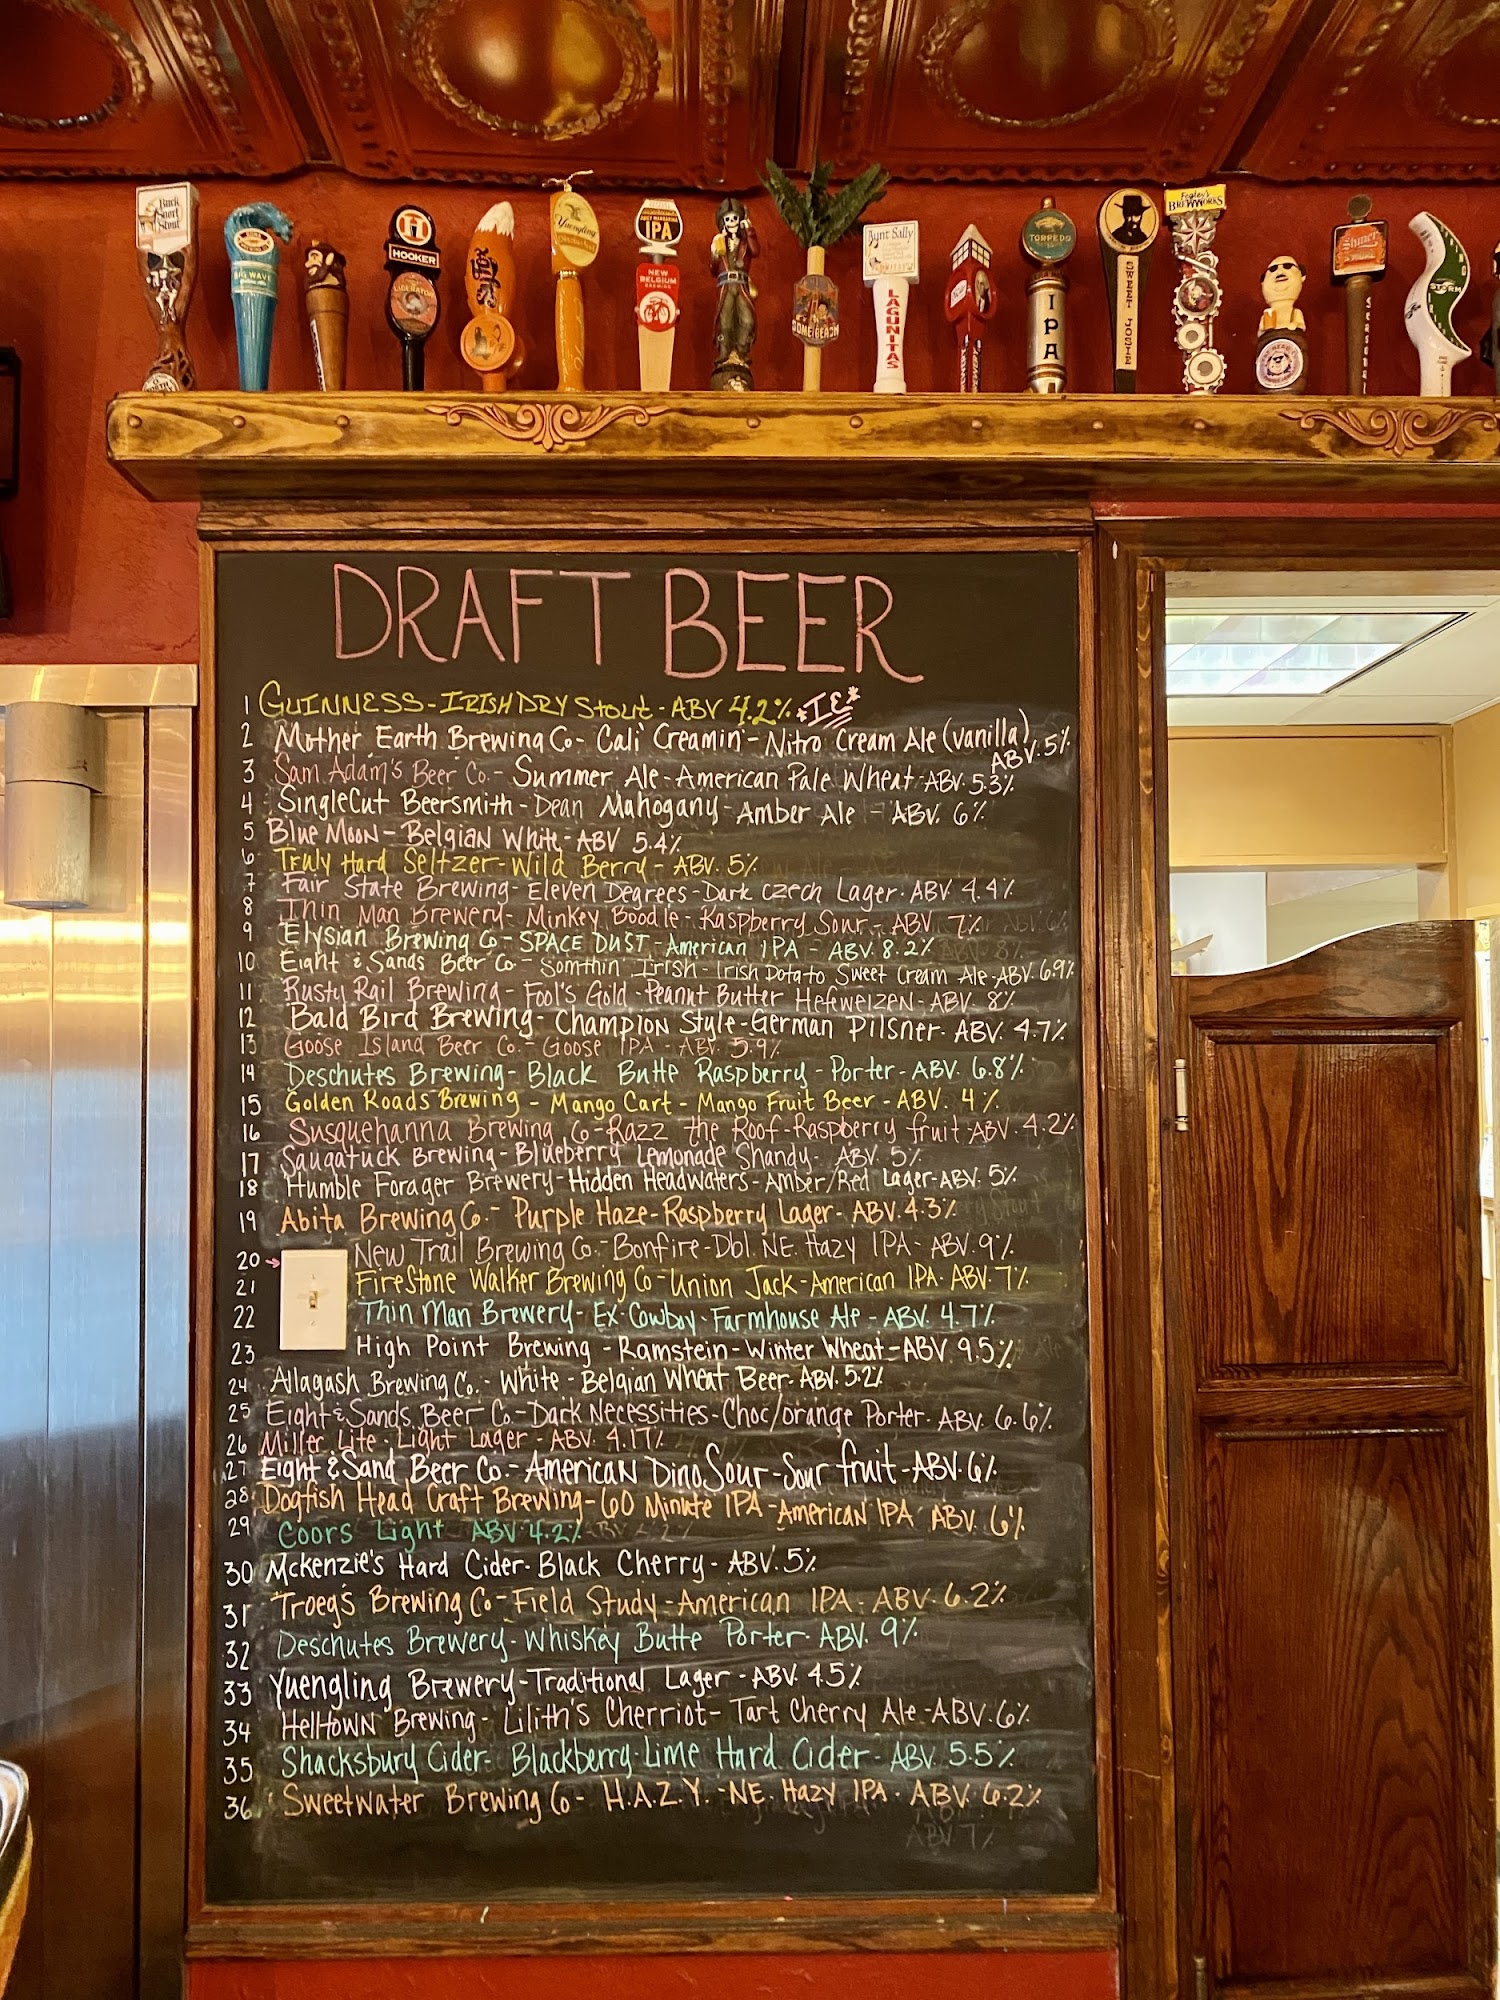 Buck
Snort
Stout
BIG WAVE
H
HOOKER
LIBERATOR
Sly Fox
Yuengling
JUICY MANDARINA
IPA
NEW
BELGIUM
BREWING
SOME BEACH
Aunt Sally
LAGUNITAS
TORPEDO
IPA
SWEET JOSIE
Fegley's
BREWWORKS
Shiner
SEASONAL
STORM
DRAFT BEER
1 GUINNESS - IRISH DRY Stout - ABV 4.2% *IE*
2 Mother Earth Brewing Co - Cali Creamin' - Nitro Cream Ale (vanilla) ABV. 5%
3 Sam Adam's Beer Co. - Summer Ale - American Pale Wheat - ABV. 5.3%
4 SingleCut Beersmith - Dean Mahogany - Amber Ale - ABV. 6%
5 Blue Moon - Belgian White - ABV 5.4%
6 Truly Hard Seltzer - Wild Berry - ABV. 5%
7 Fair State Brewing - Eleven Degrees - Dark Czech Lager - ABV 4.4%
8 Thin Man Brewery - Minkey Boodle - Raspberry Sour - ABV 7%
9 Elysian Brewing Co - SPACE DUST - American IPA - ABV. 8.2%
10 Eight & Sands Beer Co - Somthin' Irish - Irish Potato Sweet Cream Ale - ABV 6.9%
11 Rusty Rail Brewing - Fool's Gold - Peanut Butter Hefeweizen - ABV. 8%
12 Bald Bird Brewing - Champion Style - German Pilsner - ABV. 4.7%
13 Goose Island Beer Co. - Goose IPA - ABV. 5.9%
14 Deschutes Brewing - Black Butte Raspberry - Porter - ABV. 6.8%
15 Golden Roads Brewing - Mango Cart - Mango Fruit Beer - ABV. 4%
16 Susquehanna Brewing Co - Razz the Roof - Raspberry fruit - ABV. 4.2%
17 Saugatuck Brewing - Blueberry Lemonade Shandy - ABV. 5%
18 Humble Forager Brewery - Hidden Headwaters - Amber/Red Lager - ABV. 5%
19 Abita Brewing Co. - Purple Haze - Raspberry Lager - ABV. 4.3%
20 → New Trail Brewing Co. - Bonfire - Dbl. NE. Hazy IPA - ABV. 9%
21 FireStone Walker Brewing Co - Union Jack - American IPA. ABV. 7%
22 Thin Man Brewery - Ex-Cowboy - Farmhouse Ale - ABV. 4.7%
23 High Point Brewing - Ramstein - Winter Wheat - ABV 9.5%
24 Allagash Brewing Co. - White - Belgian Wheat Beer - ABV. 5.2%
25 Eight & Sands Beer Co - Dark Necessities - Choc/orange Porter - ABV. 6.6%
26 Miller Lite - Light Lager - ABV. 4.17%
27 Eight & Sand Beer Co. - American DinoSour - Sour fruit - ABV. 6%
28 Dogfish Head Craft Brewing - 60 Minute IPA - American IPA ABV. 6%
29 Coors Light ABV 4.2%
30 Mckenzie's Hard Cider - Black Cherry - ABV. 5%
31 Troeg's Brewing Co - Field Study - American IPA - ABV. 6.2%
32 Deschutes Brewery - Whiskey Butte Porter - ABV. 9%
33 Yuengling Brewery - Traditional Lager - ABV. 4.5%
34 Helltown Brewing - Lilith's Cherriot - Tart Cherry Ale - ABV. 6%
35 Shacksbury Cider - Blackberry-Lime Hard Cider - ABV. 5.5%
36 Sweetwater Brewing Co - H.A.Z.Y. - NE. Hazy IPA - ABV. 6.2%
ABV 7%